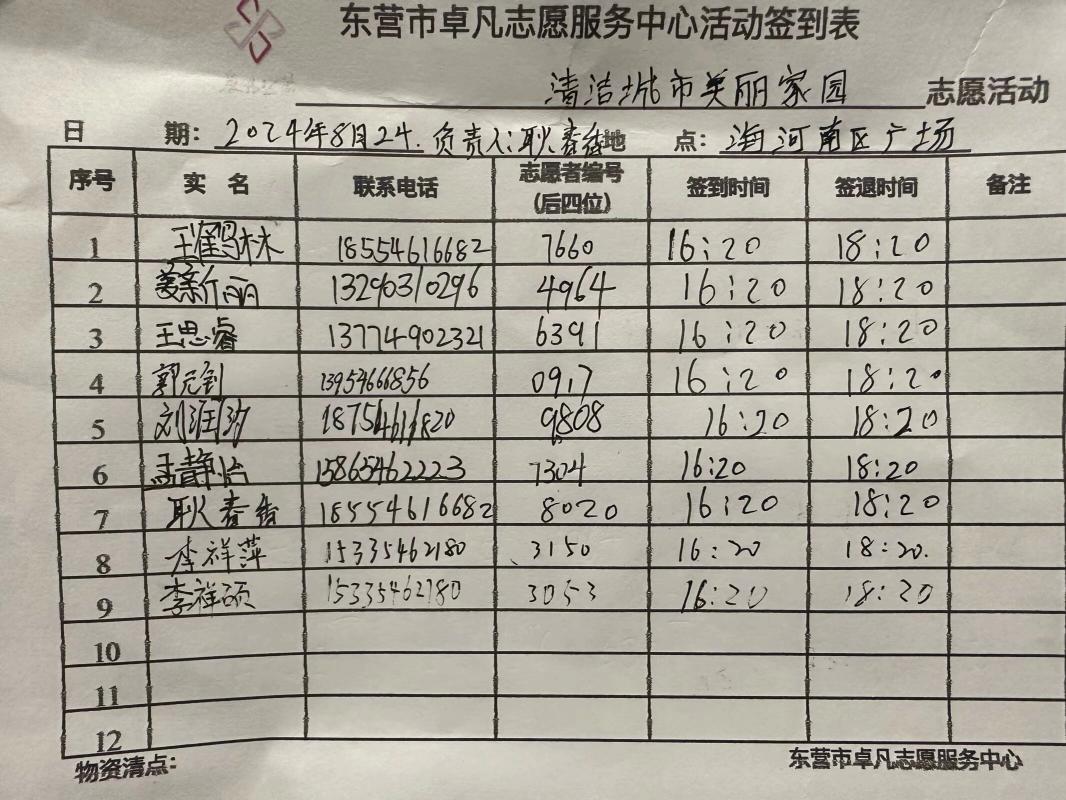 东营市卓凡志愿服务中心活动签到表
清洁城市美丽家园 志愿活动
日 期: 2024年8月24. 负责人:耿春 地 点: 海河南区广场
序号 实 名 联系电话 志愿者编号 (后四位) 签到时间 签退时间 备注
1 林 18554616682 7660 16:20 18:20
2 丽 13290310296 4964 16:20 18:20
3 王思睿 13774902321 6391 16:20 18:20
4 郭元钊 13954666856 0917 16:20 18:20
5 刘润 18754611820 9808 16:20 18:20
6 孟静怡 15865462223 7304 16:20 18:20
7 耿春 18554616682 8020 16:20 18:20
8 李祥萍 15335462180 3150 16:20 18:20.
9 李祥硕 15335462180 3053 16:20 18:20
10
11
12
物资清点:
东营市卓凡志愿服务中心